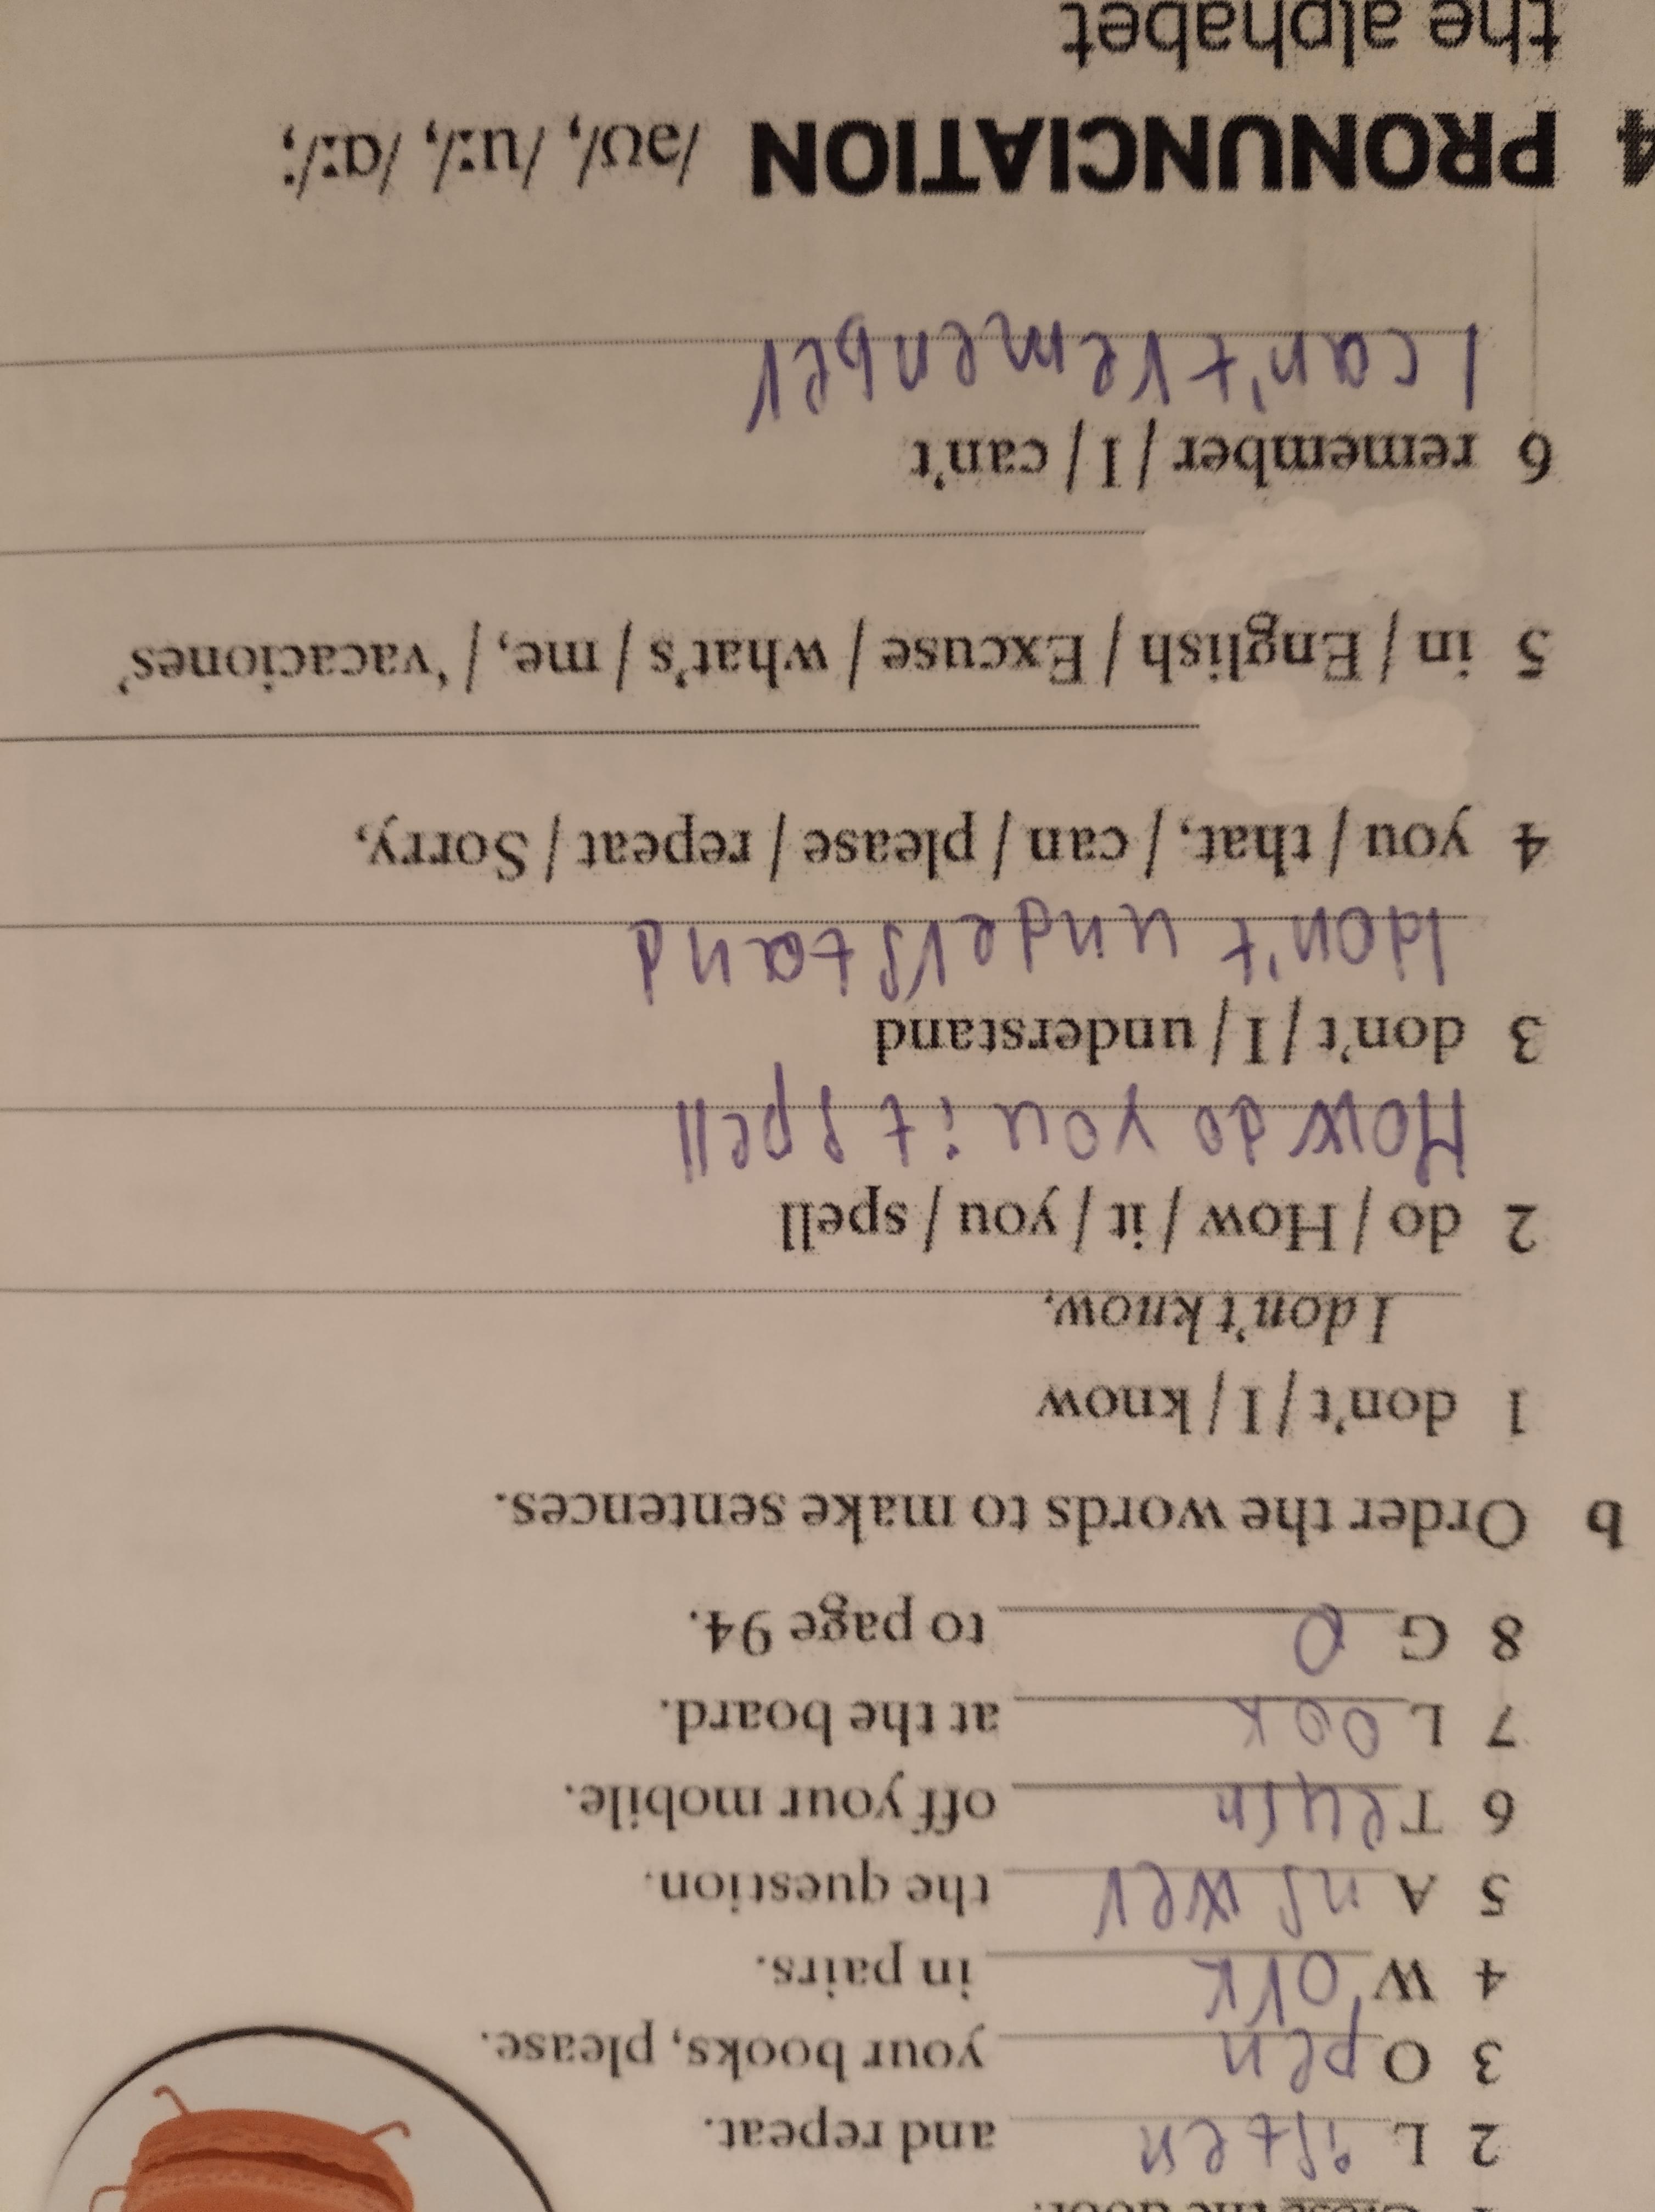 2 L isten and repeat.
3 O pen your books, please.
4 W ork in pairs.
5 A nswer the question.
6 T eurn off your mobile.
7 L ook at the board.
8 G o to page 94.
b Order the words to make sentences.
1 don't / I / know
I don't know.
2 do / How / it / you / spell
How do you it spell
3 don't / I / understand
I don't understand
4 you / that, / can / please / repeat / Sorry,
5 in / English / Excuse / what's / me, / 'vacaciones'
6 remember / I / can't
I can't remenber
4 PRONUNCIATION /əʊ/, /uː/, /ɑː/;
the alphabet